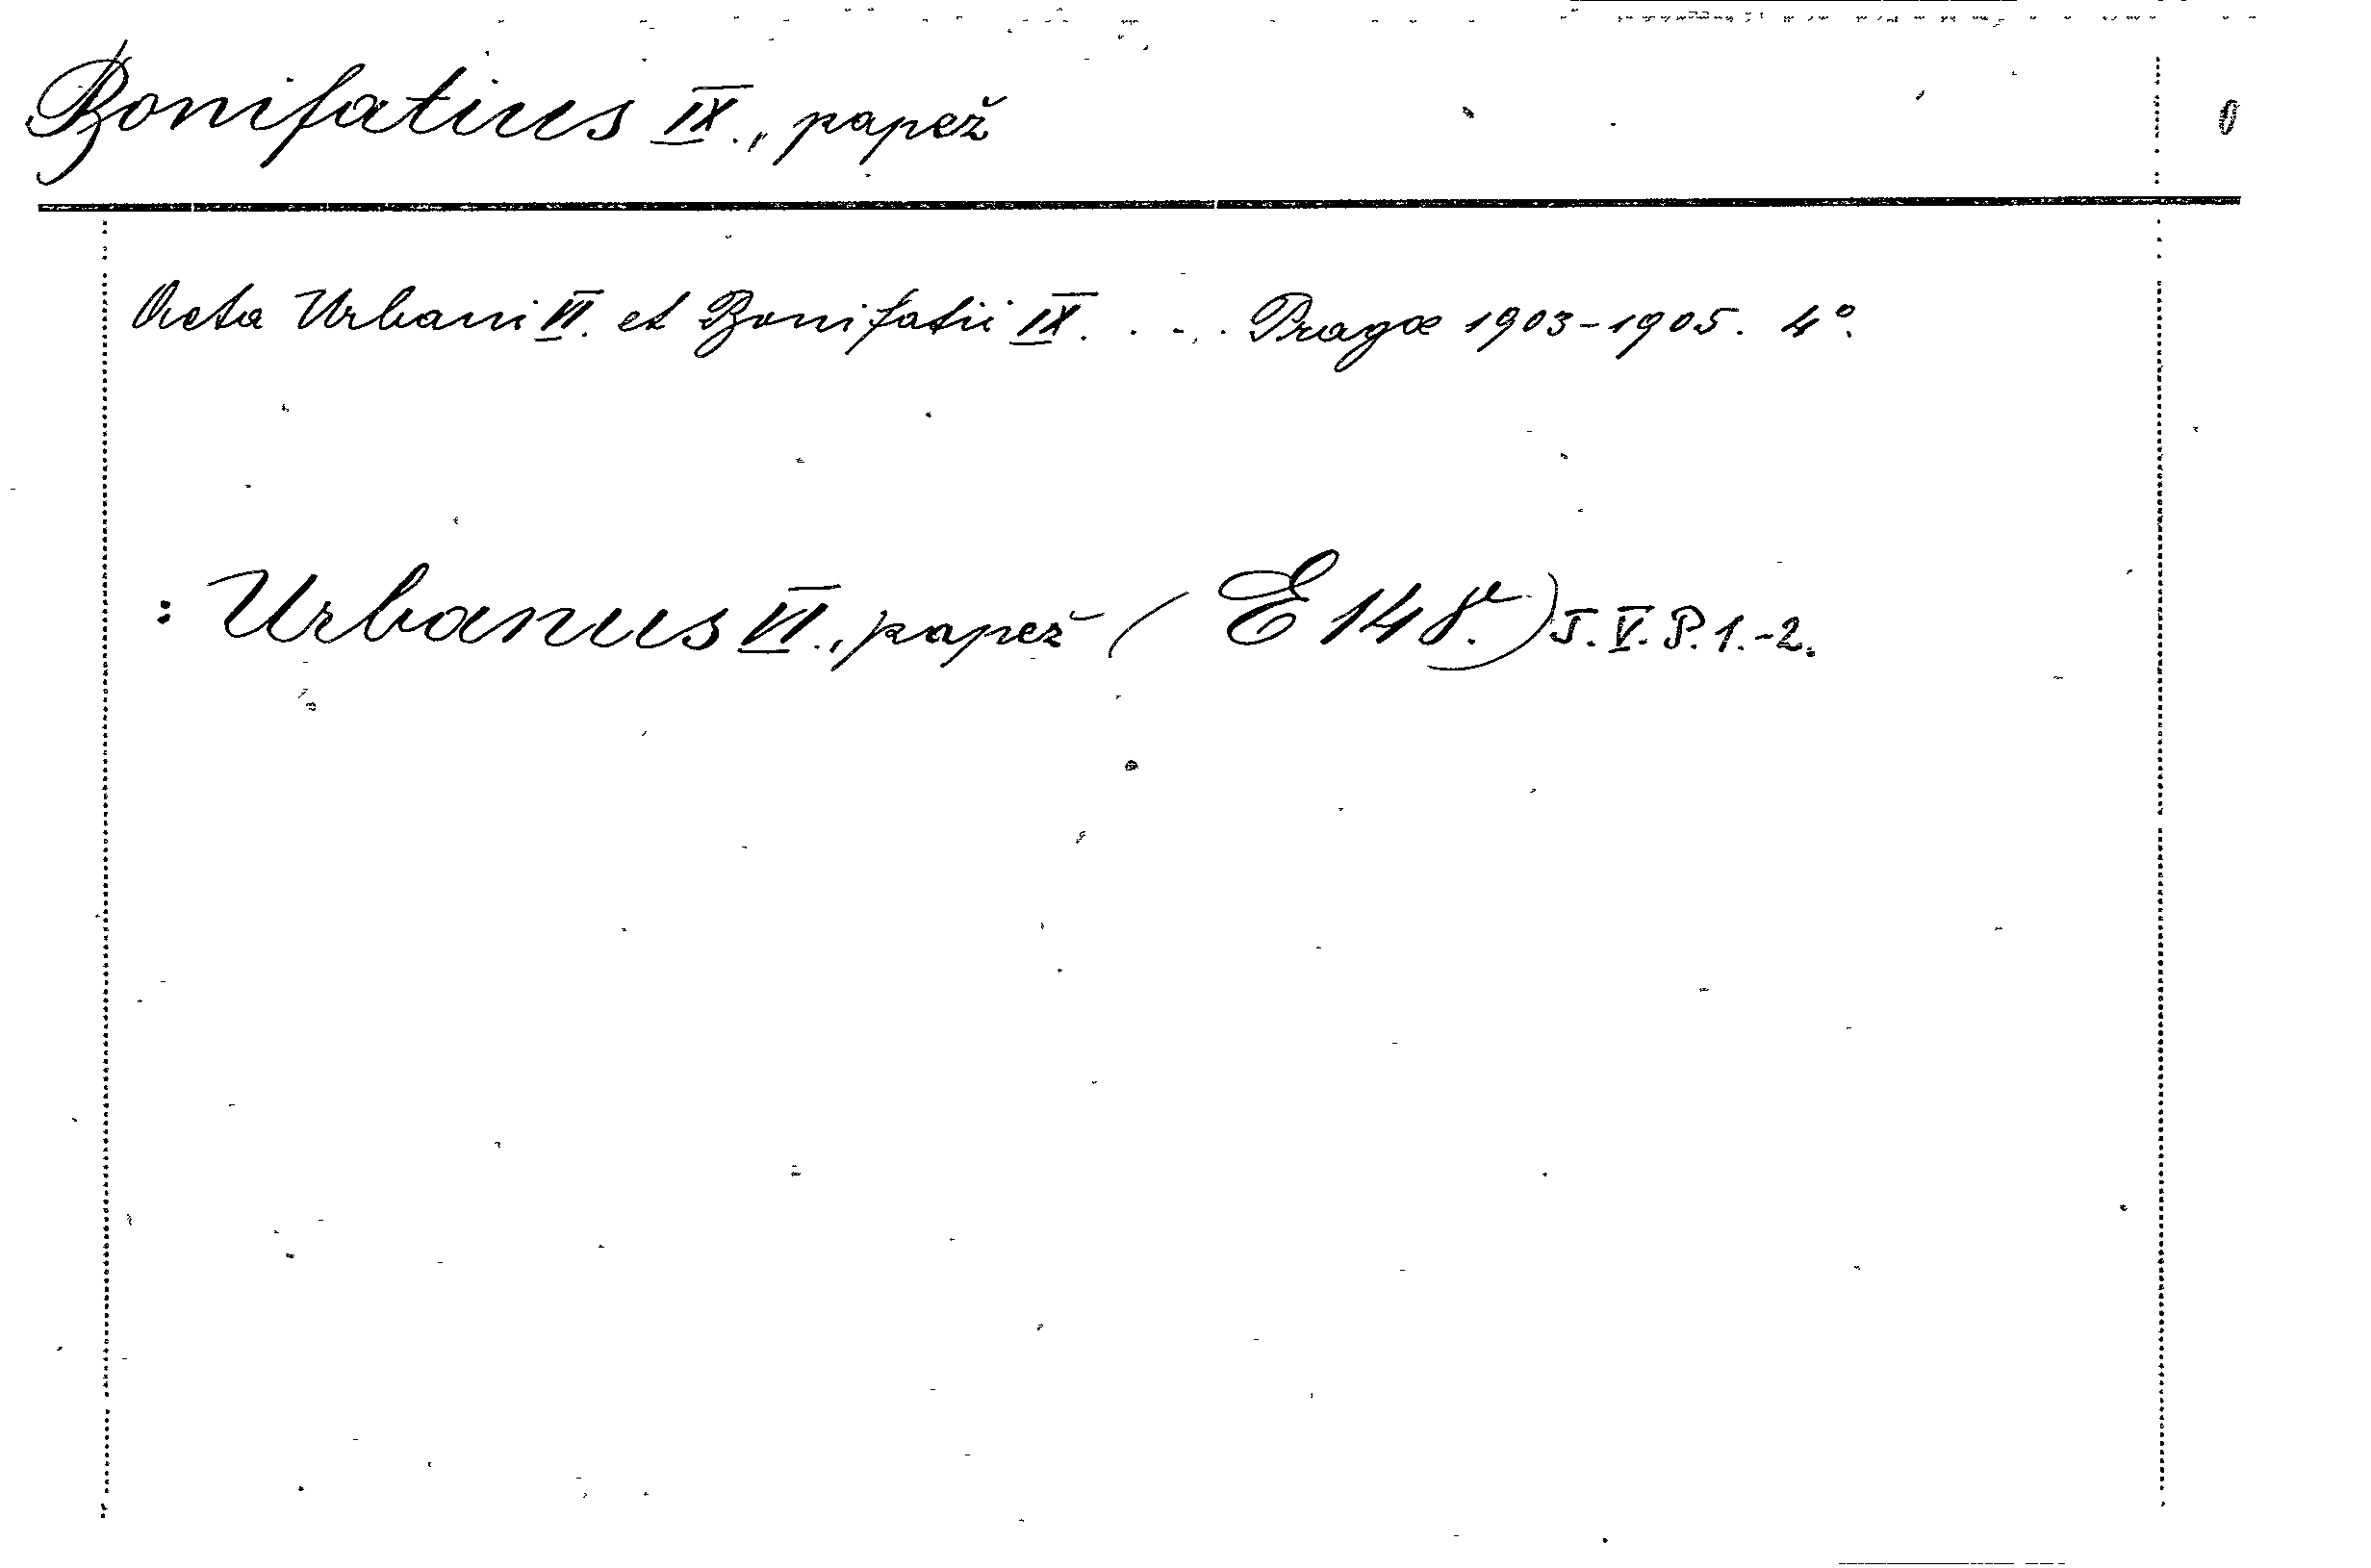 Bonifatius IX., papež
Acta Urbani VI. et Bonifatii IX. . . . . Pragæ 1903-1905. 4°.
: Urbanus VI., papež (E 148.) T. V. P. 1.-2.